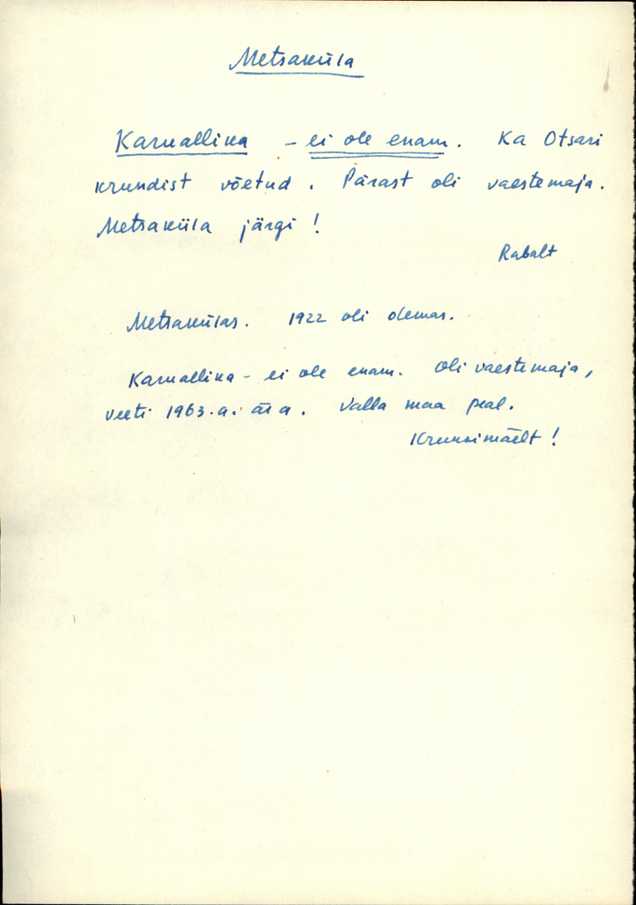 Metsaküla
Karuallika – ei ole enam. Ka Otsari
krundist võetud. Pärast oli vaestemaja.
Metsaküla järgi!
Rabalt
Metsakülas. 1922 oli olemas.
Karuallika – ei ole enam. Oli vaestemaja,
veeti 1963.a. ära. Valla maa peal.
Kruusimäelt!